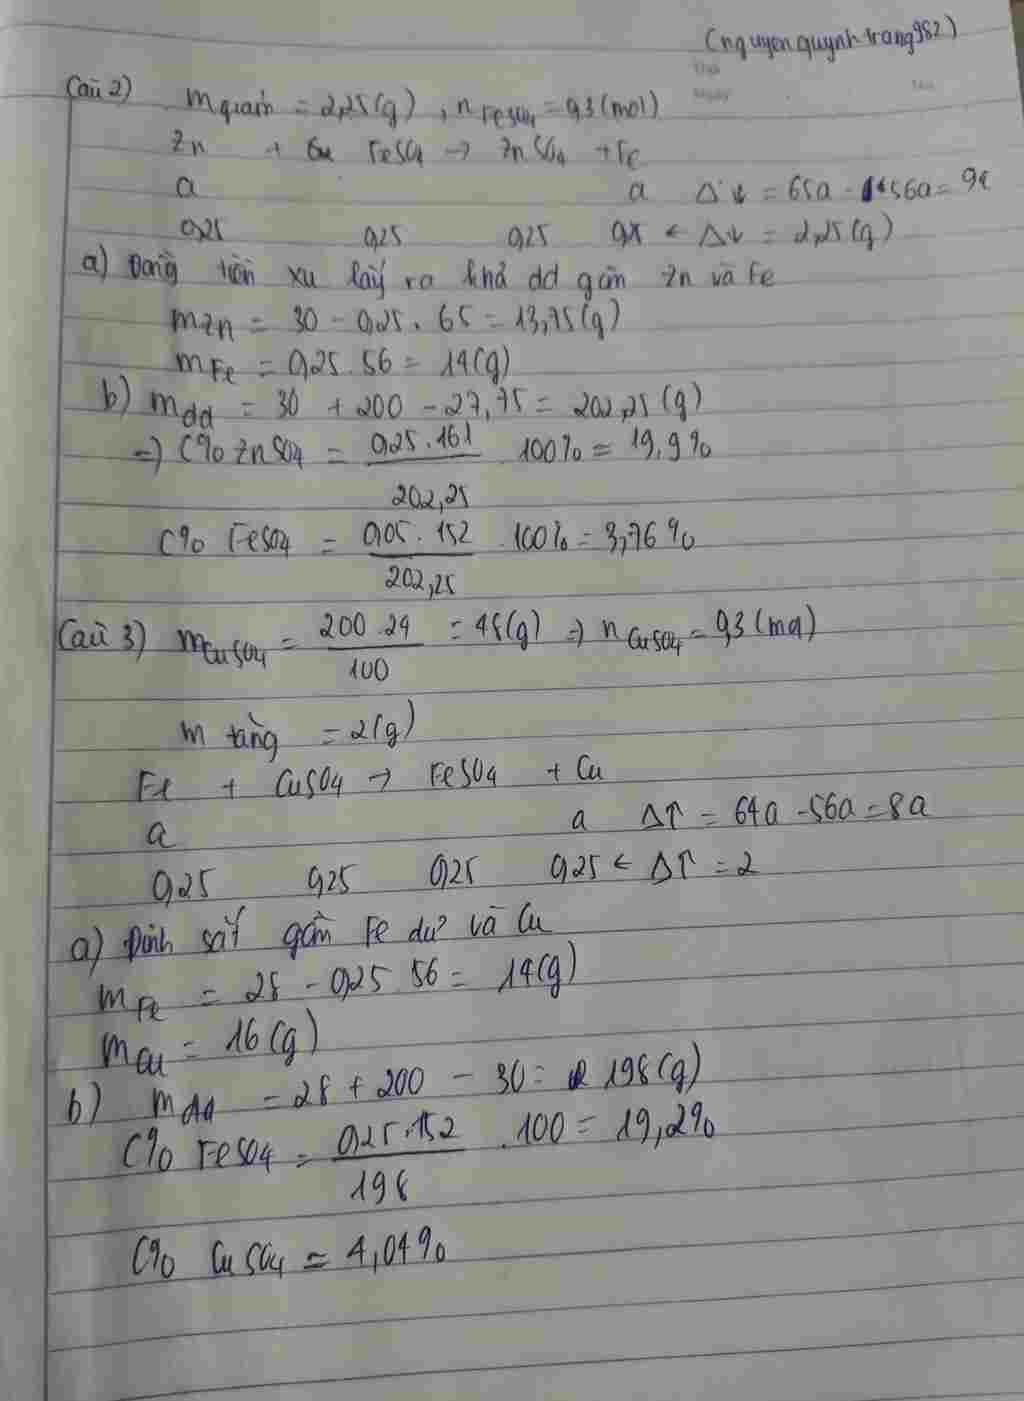 (nguyenquynhtrang982)
Câu 2) m giảm = 2,25(g), nFeSO4 = 0,3(mol)
Zn + FeSO4 → ZnSO4 + Fe
a a Δ↓ = 65a - 56a = 9a
0,25 0,25 0,25 0,25 ← Δ↓ = 2,25(g)
a) Đồng tiền xu lấy ra khỏi dd gồm Zn và Fe
mZn = 30 - 0,25.65 = 13,75(g)
mFe = 0,25.56 = 14(g)
b) mdd = 30 + 200 - 27,75 = 202,25(g)
=) C% ZnSO4 = 0,25.161 / 202,25 100% = 19,9%
C% FeSO4 = 0,05.152 / 202,25 .100% = 3,76%
Câu 3) mCuSO4 = 200.24 / 100 = 48(g) => nCuSO4 = 0,3(mol)
m tăng = 2(g)
Fe + CuSO4 → FeSO4 + Cu
a a Δ↑ = 64a - 56a = 8a
0,25 0,25 0,25 0,25 ← Δ↑ = 2
a) Đinh sắt gồm Fe dư và Cu
mFe = 28 - 0,25.56 = 14(g)
mCu = 16(g)
b) mdd = 28 + 200 - 30 = 198(g)
C% FeSO4 = 0,25.152 / 198 .100 = 19,2%
C% CuSO4 = 4,04%